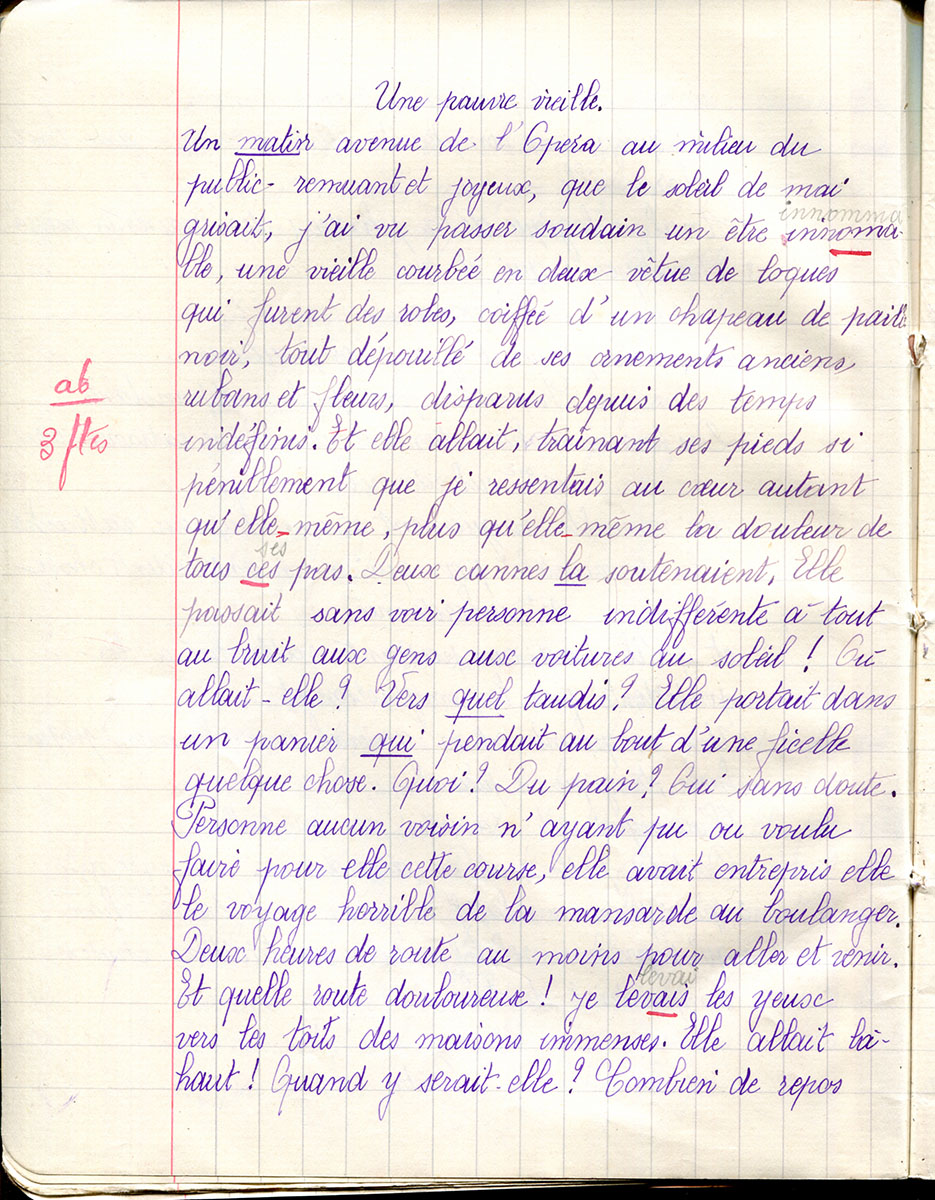 Une pauvre vieille.
Un matin avenue de l'Opéra au milieu du
public remuant et joyeux, que le soleil de mai
innomma
grisait, j'ai vu passer soudain un être innoma-
ble, une vieille courbée en deux vêtue de loques
qui furent des robes, coiffée d'un chapeau de paille
noir, tout dépouillé de ses ornements anciens
rubans et fleurs, disparus depuis des temps
indéfinis. Et elle allait, traînant ses pieds si
ab
3 ftes
péniblement que je ressentais au cœur autant
qu'elle-même, plus qu'elle-même la douleur de
ses
tous ces pas. Deux cannes la soutenaient. Elle
passait sans voir personne indifférente à tout
au bruit aux gens aux voitures au soleil ! Où
allait-elle ? Vers quel taudis ? Elle portait dans
un panier qui pendait au bout d'une ficelle
quelque chose. Quoi ? Du pain ? Oui sans doute.
Personne aucun voisin n'ayant pu ou voulu
faire pour elle cette course, elle avait entrepris elle
le voyage horrible de la mansarde au boulanger.
Deux heures de route au moins pour aller et venir.
levai
Et quelle route douloureuse ! je levais les yeux
vers les toits des maisons immenses. Elle allait là-
haut ! Quand y serait-elle ? Combien de repos